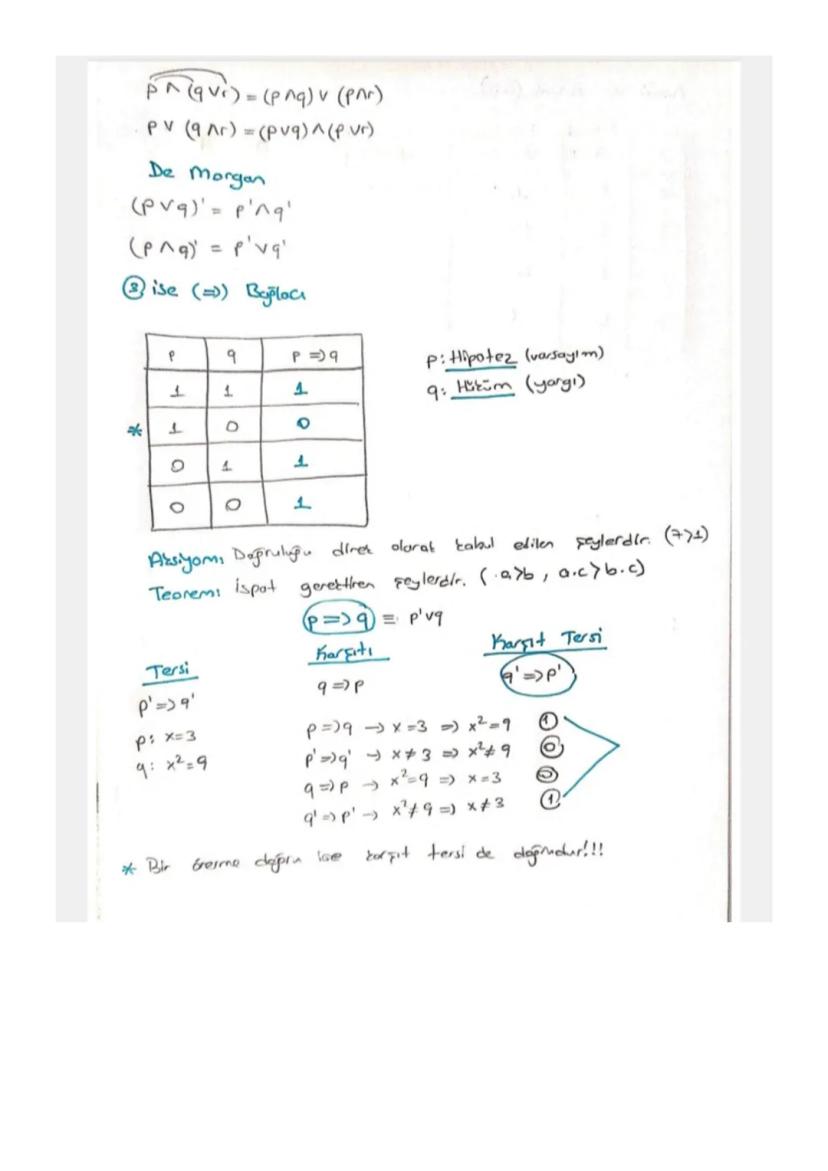 p ∧ (q ∨ r) = (p ∧ q) ∨ (p ∧ r)
p ∨ (q ∧ r) = (p ∨ q) ∧ (p ∨ r)
De Morgan
(p ∨ q)' = p' ∧ q'
(p ∧ q)' = p' ∨ q'
③ ise (=>) Bağlacı
p q p => q
1 1 1
* 1 0 0
0 1 1
0 0 1
p: Hipotez (varsayım)
q: Hüküm (yargı)
Aksiyom: Doğruluğu direk olarak kabul edilen şeylerdir. (7>1)
Teorem: İspat gerektiren şeylerdir. (a>b, a.c>b.c)
p => q ≡ p' ∨ q
Tersi
p' => q'
p: x=3
q: x²=9
Karşıtı
q => p
Karşıt Tersi
q' => p'
p => q → x=3 => x²=9 ①
p' => q' → x≠3 => x²≠9 ⓪
q => p → x²=9 => x=3 ⓪
q' => p' → x²≠9 => x≠3 ①
* Bir önerme doğru ise karşıt tersi de doğrudur!!!